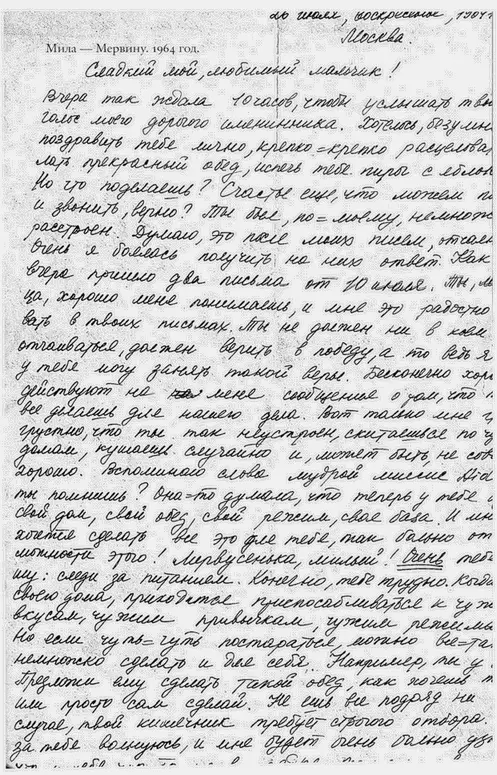 26 июля, воскресенье, 1964
Москва.
Мила — Мервину. 1964 год.
Сладкий мой, любимый мальчик!
Вчера так ждала 10 часов, чтобы услышать
голос моего дорогого именинника. Хотелось, безумн
поздравить тебе лично, крепко=крепко расцелова
лать прекрасный обед, испечь тебе пирог с яблок
Но что поделаешь? Счастье еще, что можем п
и звонить, верно? Ты был, по=моему, немножк
расстроен. Думаю, это после моих писем, отчая
Очень я боялась получить на них ответ. Как
вчера пришло два письма от 10 июля. Ты,
ца, хорошо мене понимаешь, и мне это радостно
вать в твоих письмах. Ты не должен ни в коем
отчаиваться, должен верить в победу, а то ведь я
у тебе могу занять такой веры. Бесконечно хоро
действуют на мене сообщение о том, что
все делаешь для нашего дела. Вот только мне
грустно, что ты так неустроен, скитаешься по ч
домам, кушаешь случайно и, может быть, не сов
хорошо. Вспоминаю слова мудрой миссис
ты помнишь? Она=то думала, что теперь у тебе
свой дом, свой обед, свой режим, свое база. И мн
хочется сделать все это для тебе, так больно от
можности этого! Мервусенька, милый! Очень тебе
шу: следи за питанием. Конечно, тебе трудно. Когда
своего дома, приходится приспосабливаться к чуж
вкусам, чужим привычкам, чужим режимам
Но если чуть=чуть постараться, можно все=та
немножко сделать и для себе. Например, ты у
Предложи ему сделать такой обед, как хочешь т
или просто сам сделай. Не ешь все подряд ни
случае, твой кишечник требует строгого отбора.
за тебе волнуюсь, и мне будет очень больно